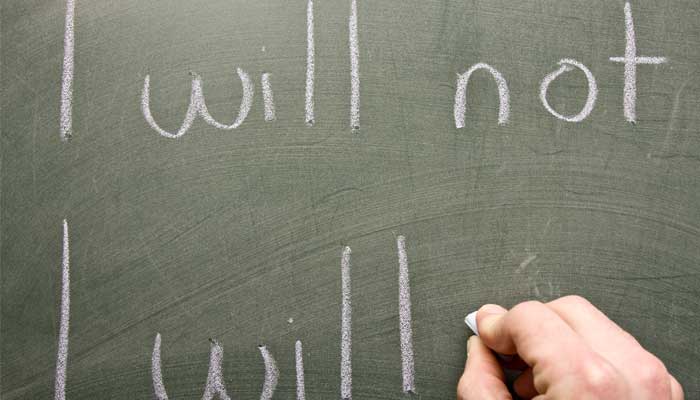 I will not
I will